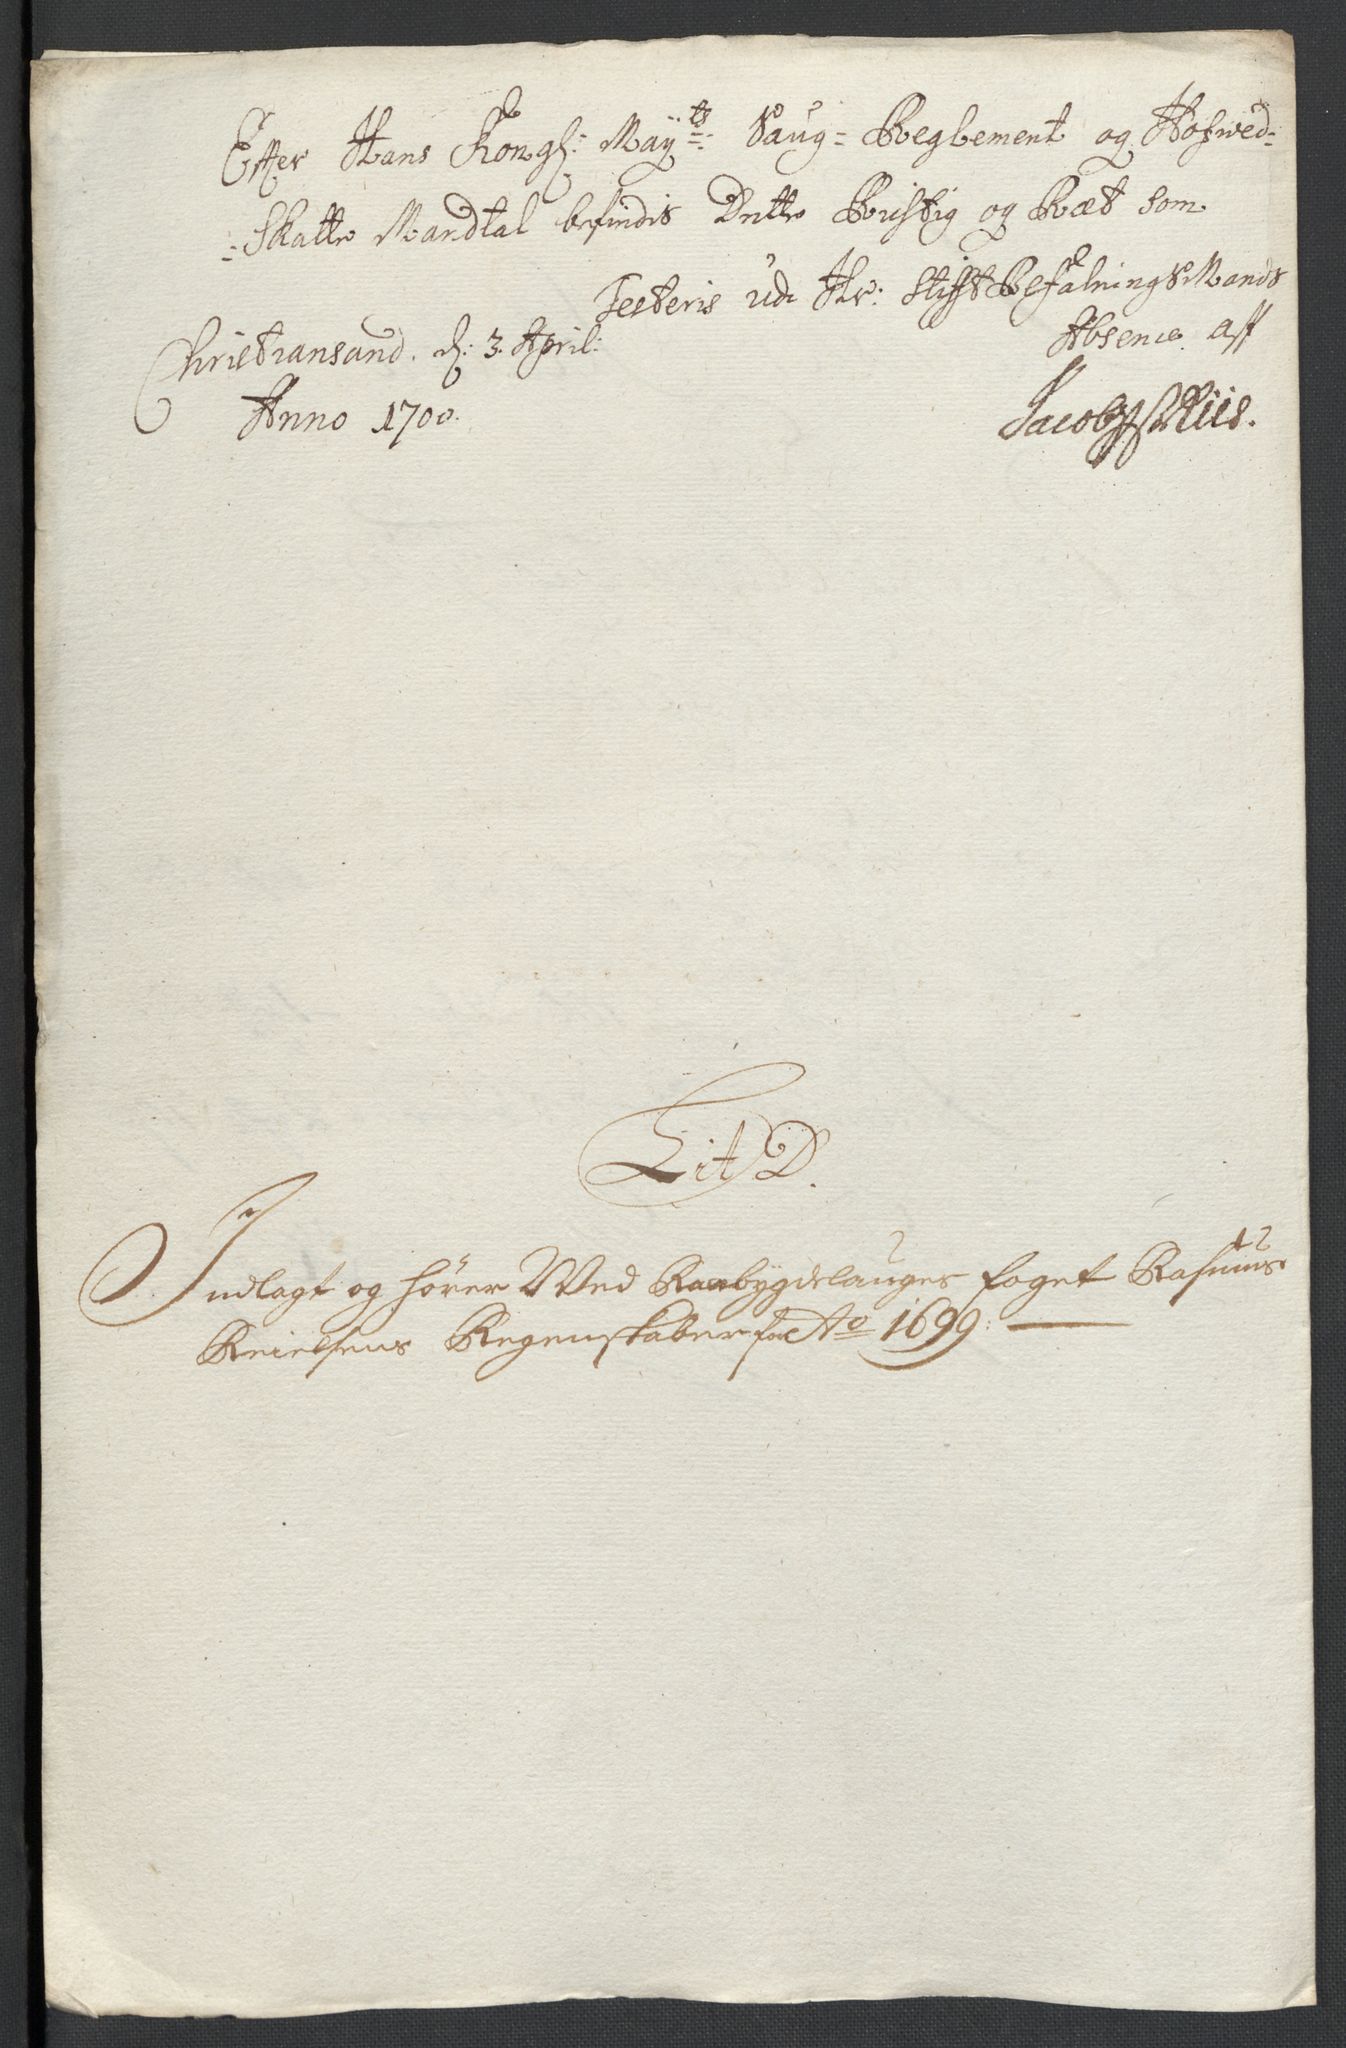 Efter Hans Kongl: Mayts: Saug= Reglement og Hofved=
=Skatte Mandtal befindis Dette Rigtig og Ræt som
Testeris udi Hr: StiftBefalningsMands
Absence aff
Christiansand. d: 3. April:
Anno 1700.
Jacob Riis.
Lit D.
Indlagt og hörer Wed Raabygdelauges foget Rasmus
Regenskaber for Ao 1699: